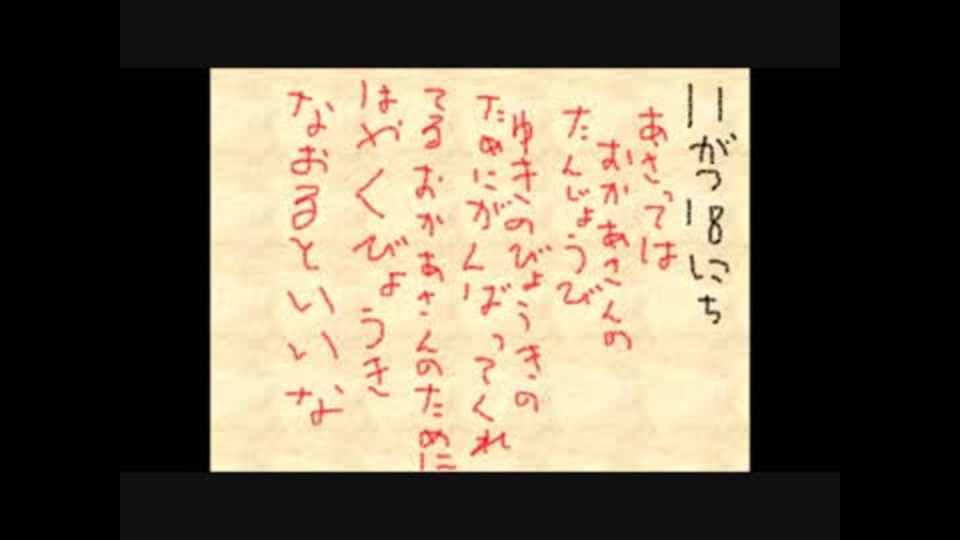 11がつ18にち
あさっては
おかあさんの
たんじょうび
ゆきのびょうきの
ためにがんばってくれ
てるおかあさんのために
はやくびょうき
なおるといいな